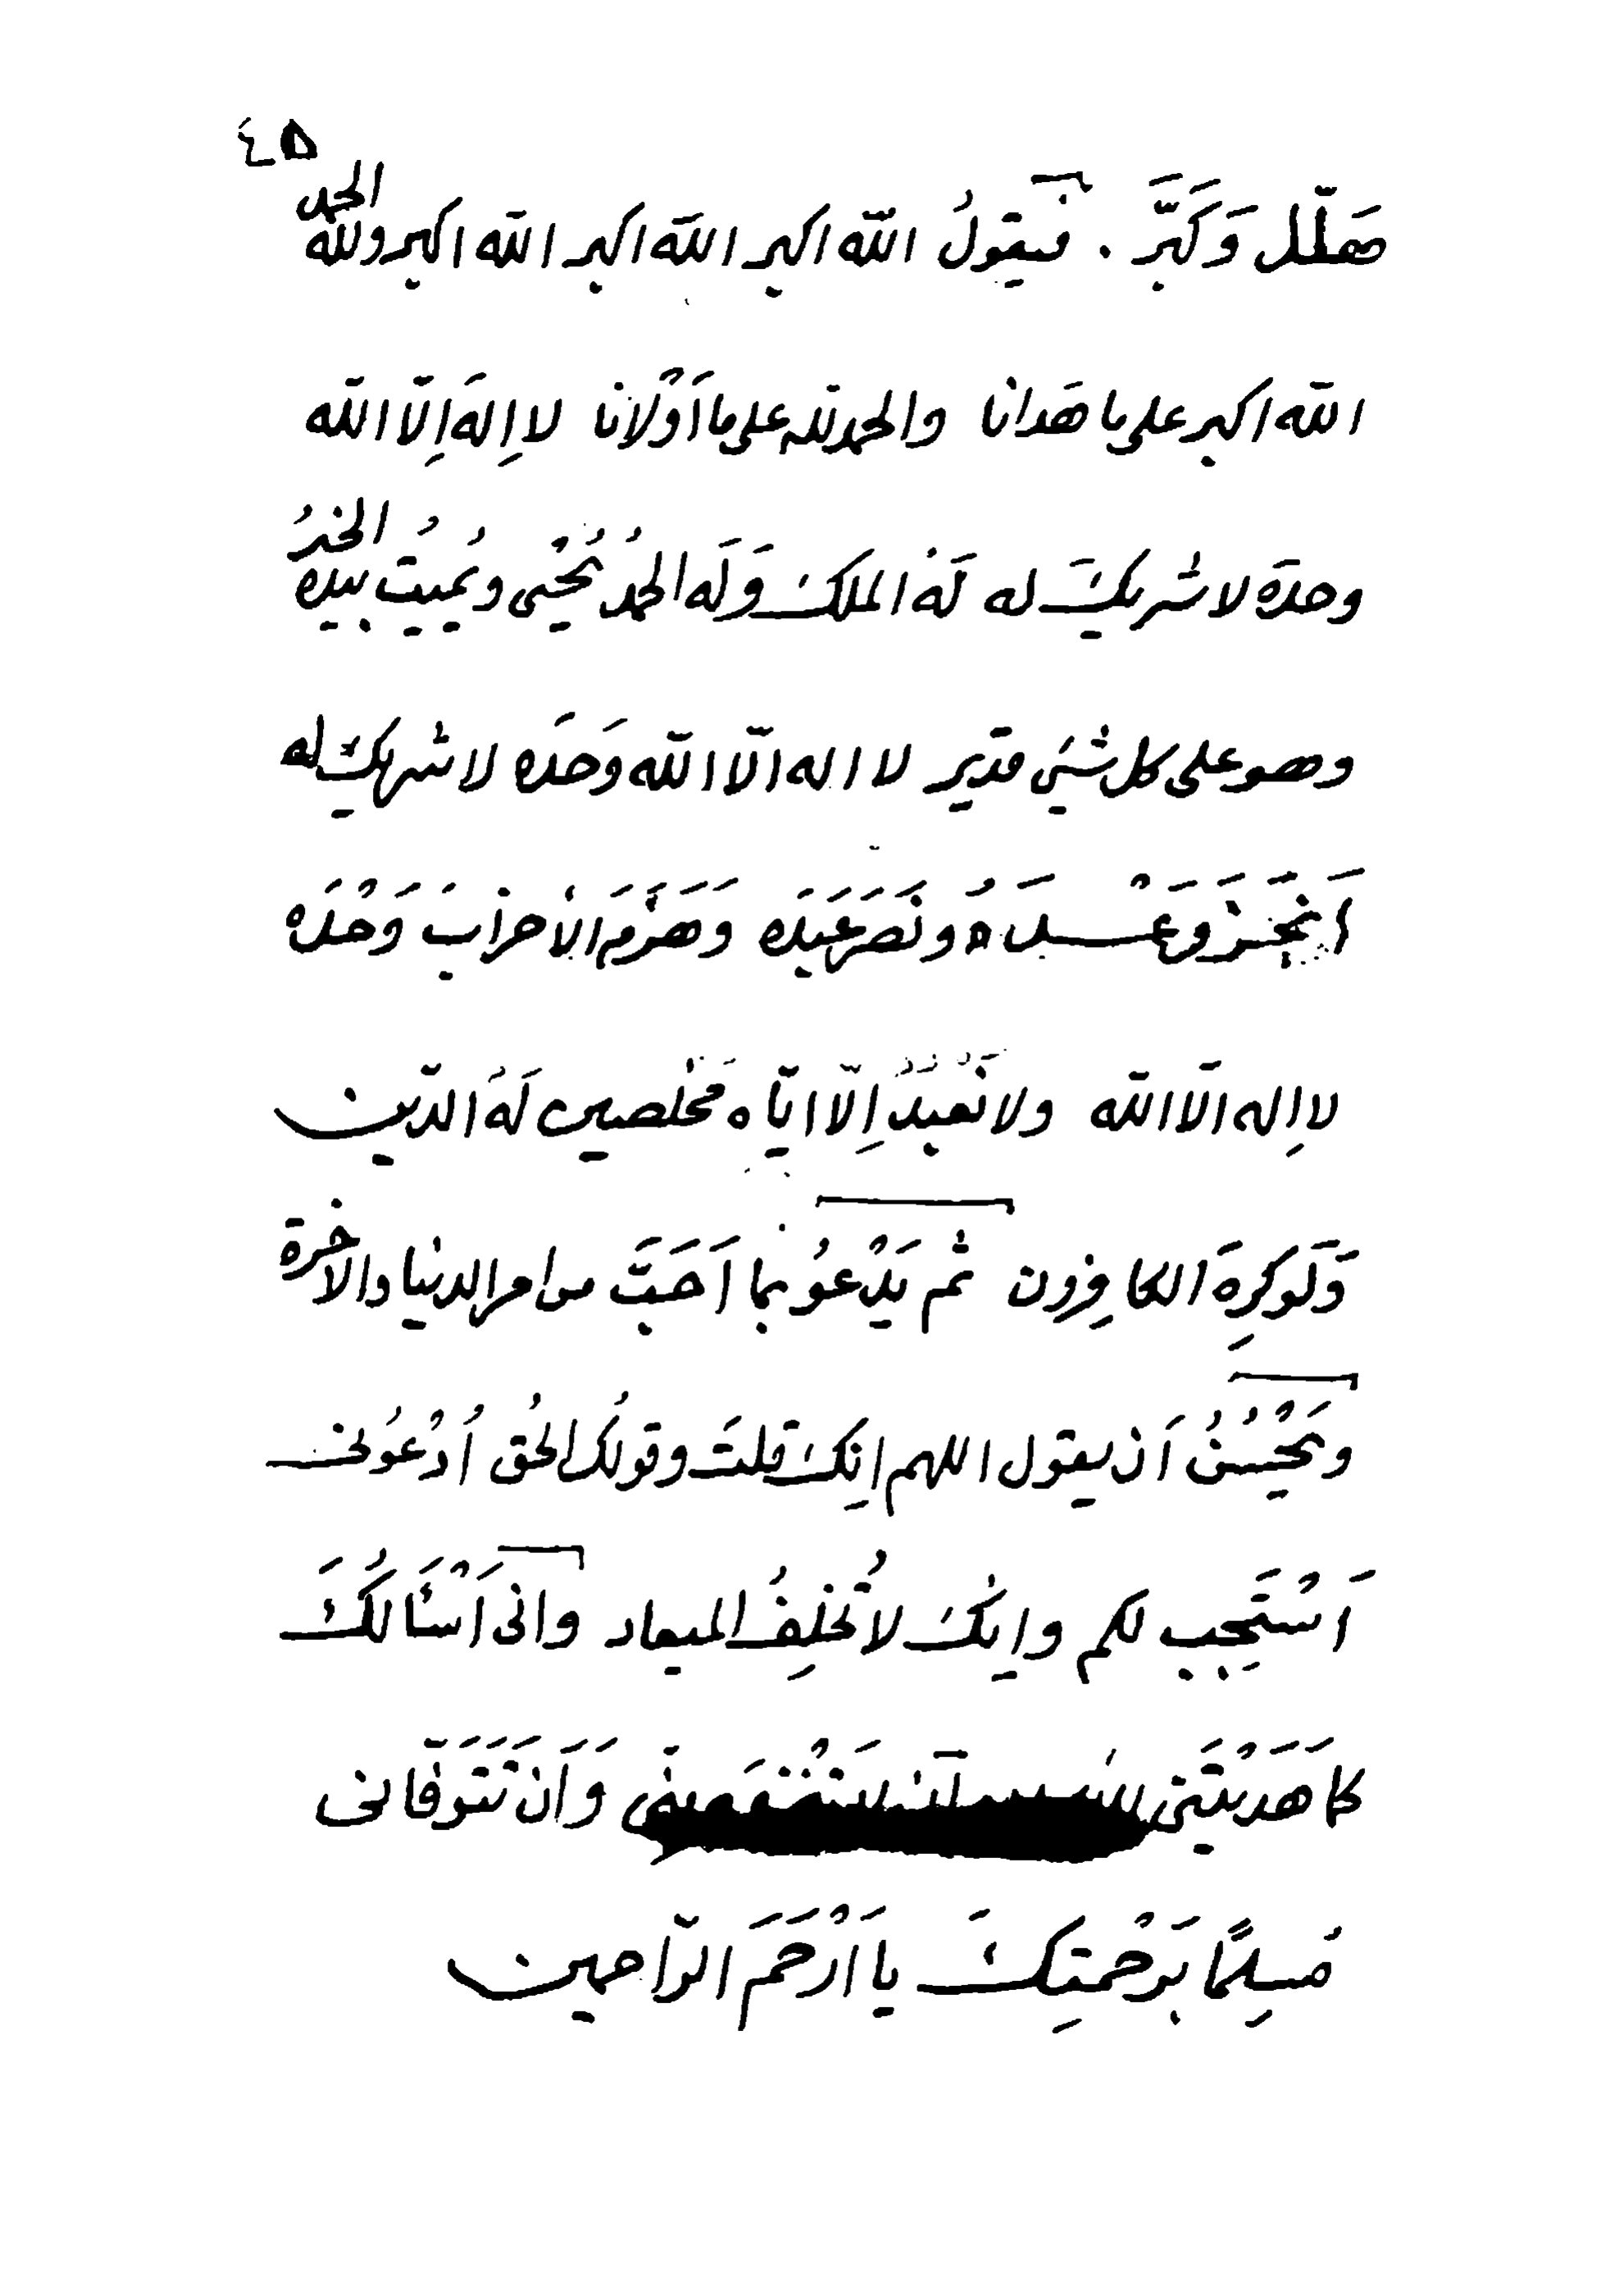 ٤٥
هَلَّلَ وَكَبَّرَ . فيقولُ اللّه اكبر اللّه اكبر اللّه اكبر وللّه الحمد
اللّه اكبر على ما هَدانا والحمد لله على ما اَوْلانا لا اِلهَ اِلّا اللّه
وحدَه لا شريكَ له لَهُ الملك وَلَه الحمدُ يُحْيى ويُميتُ بيدِه الخيرُ
وهو على كل شيئ قدير لا اله الّا اللّه وَحدَه لا شريكَ له
اَنْجَزَ وَعْدَهُ ونَصَرَ عَبدَه وَهَزَمَ الأحزابَ وَحْدَه
لا اِله الّا اللّه ولا نَعْبُدُ اِلّا ايّاه مُخْلصين لَهُ الدّين
وَلَو كَرِهَ الكافِرون ثم يَدْعُو بما اَحَبَّ من امر الدنيا والآخرة
ويَحْسُنُ اَن يقول اللهم اِنك قلتَ وقولُك الحُق اُدْعوُنى
اَسْتَجِب لكم وانِك لا تُخلِفُ الميعاد وانى اَسْئَالُكَ
كما هَدَيْتَنى وَاَن تَتَوَفّانى
مُسلِمًا بَرحْمتِكَ يا اَرْحَمَ الرّاحمين